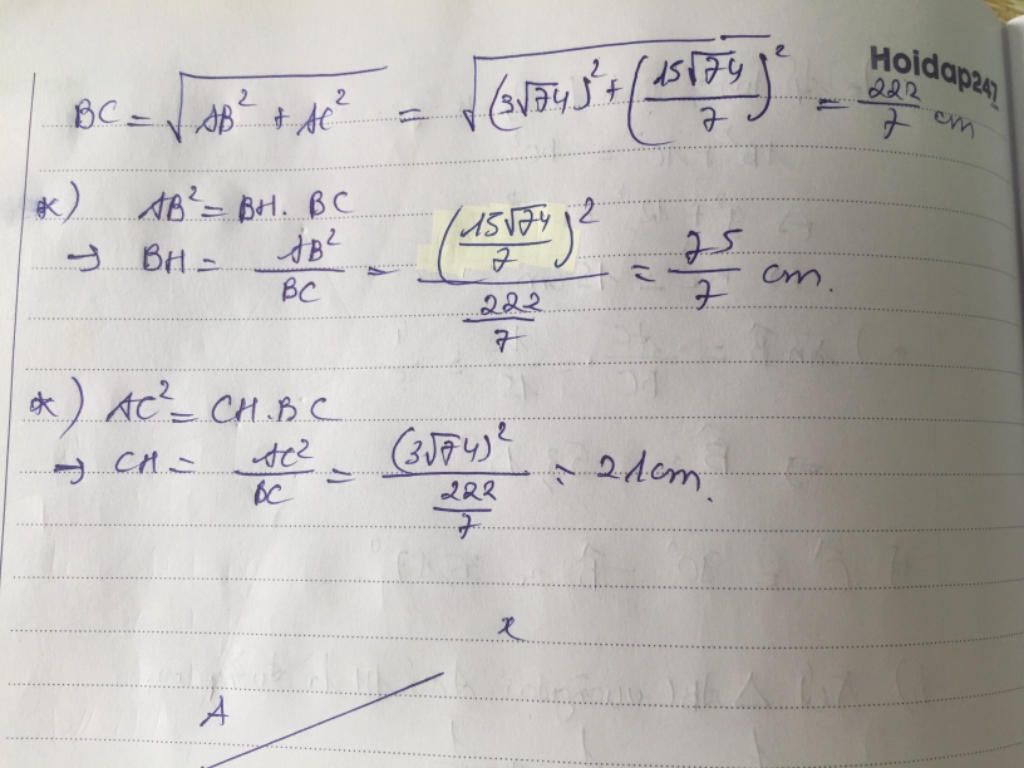 Hoidap247
BC = √(AB² + AC²) = √((3√74)² + (15√74/7)²) = 222/7 cm
*) AB² = BH. BC
→ BH = AB²/BC = (15√74/7)²/(222/7) = 75/7 cm.
*) AC² = CH.BC
→ CH = AC²/BC = (3√74)²/(222/7) = 21cm.
x
A